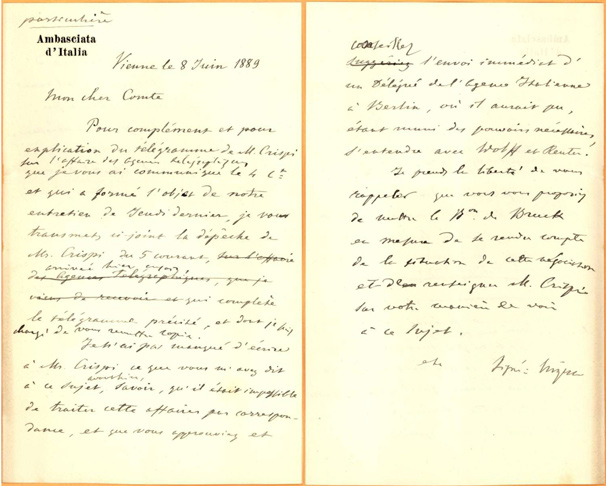 particulière
Ambasciata
d'Italia
Vienne le 8 Juin 1889
Mon cher Comte
Pour complément et pour
explication du télégramme de M. Crispi
sur l'affaire des agences télégraphiques
que je vous ai communiqué le 4 ct
et qui a formé l'objet de notre
entretien de Jeudi dernier, je vous
transmets ci joint la dépêche de
Mr. Crispi du 5 courant, sur l'affaire
arrivée hier
des agences télégraphiques, que je
viens de recevoir et qui complète
le télégramme précité, et dont je suis
chargé de vous remettre copie.
Je n'ai pas manqué d'écrire
à Mr. Crispi ce que vous m'avez dit
à ce sujet, savoir, qu'il était impossible
de traiter cette affaire par correspon-
dance, et que vous approuviez et
conseillez
l'envoi immédiat d'
un Délégué de l'Agence Italienne
à Berlin, où il aurait pu,
étant muni des pouvoirs nécessaires,
s'entendre avec Wolff et Reuter.
Je prends la liberté de vous
rappeler que vous vous proposiez
de mettre le Bon de Bruck
en mesure de se rendre compte
de la situation de cette négociation
et d'en renseigner M. Crispi
sur votre manière de voir
à ce sujet.
etc
signé: Nigra